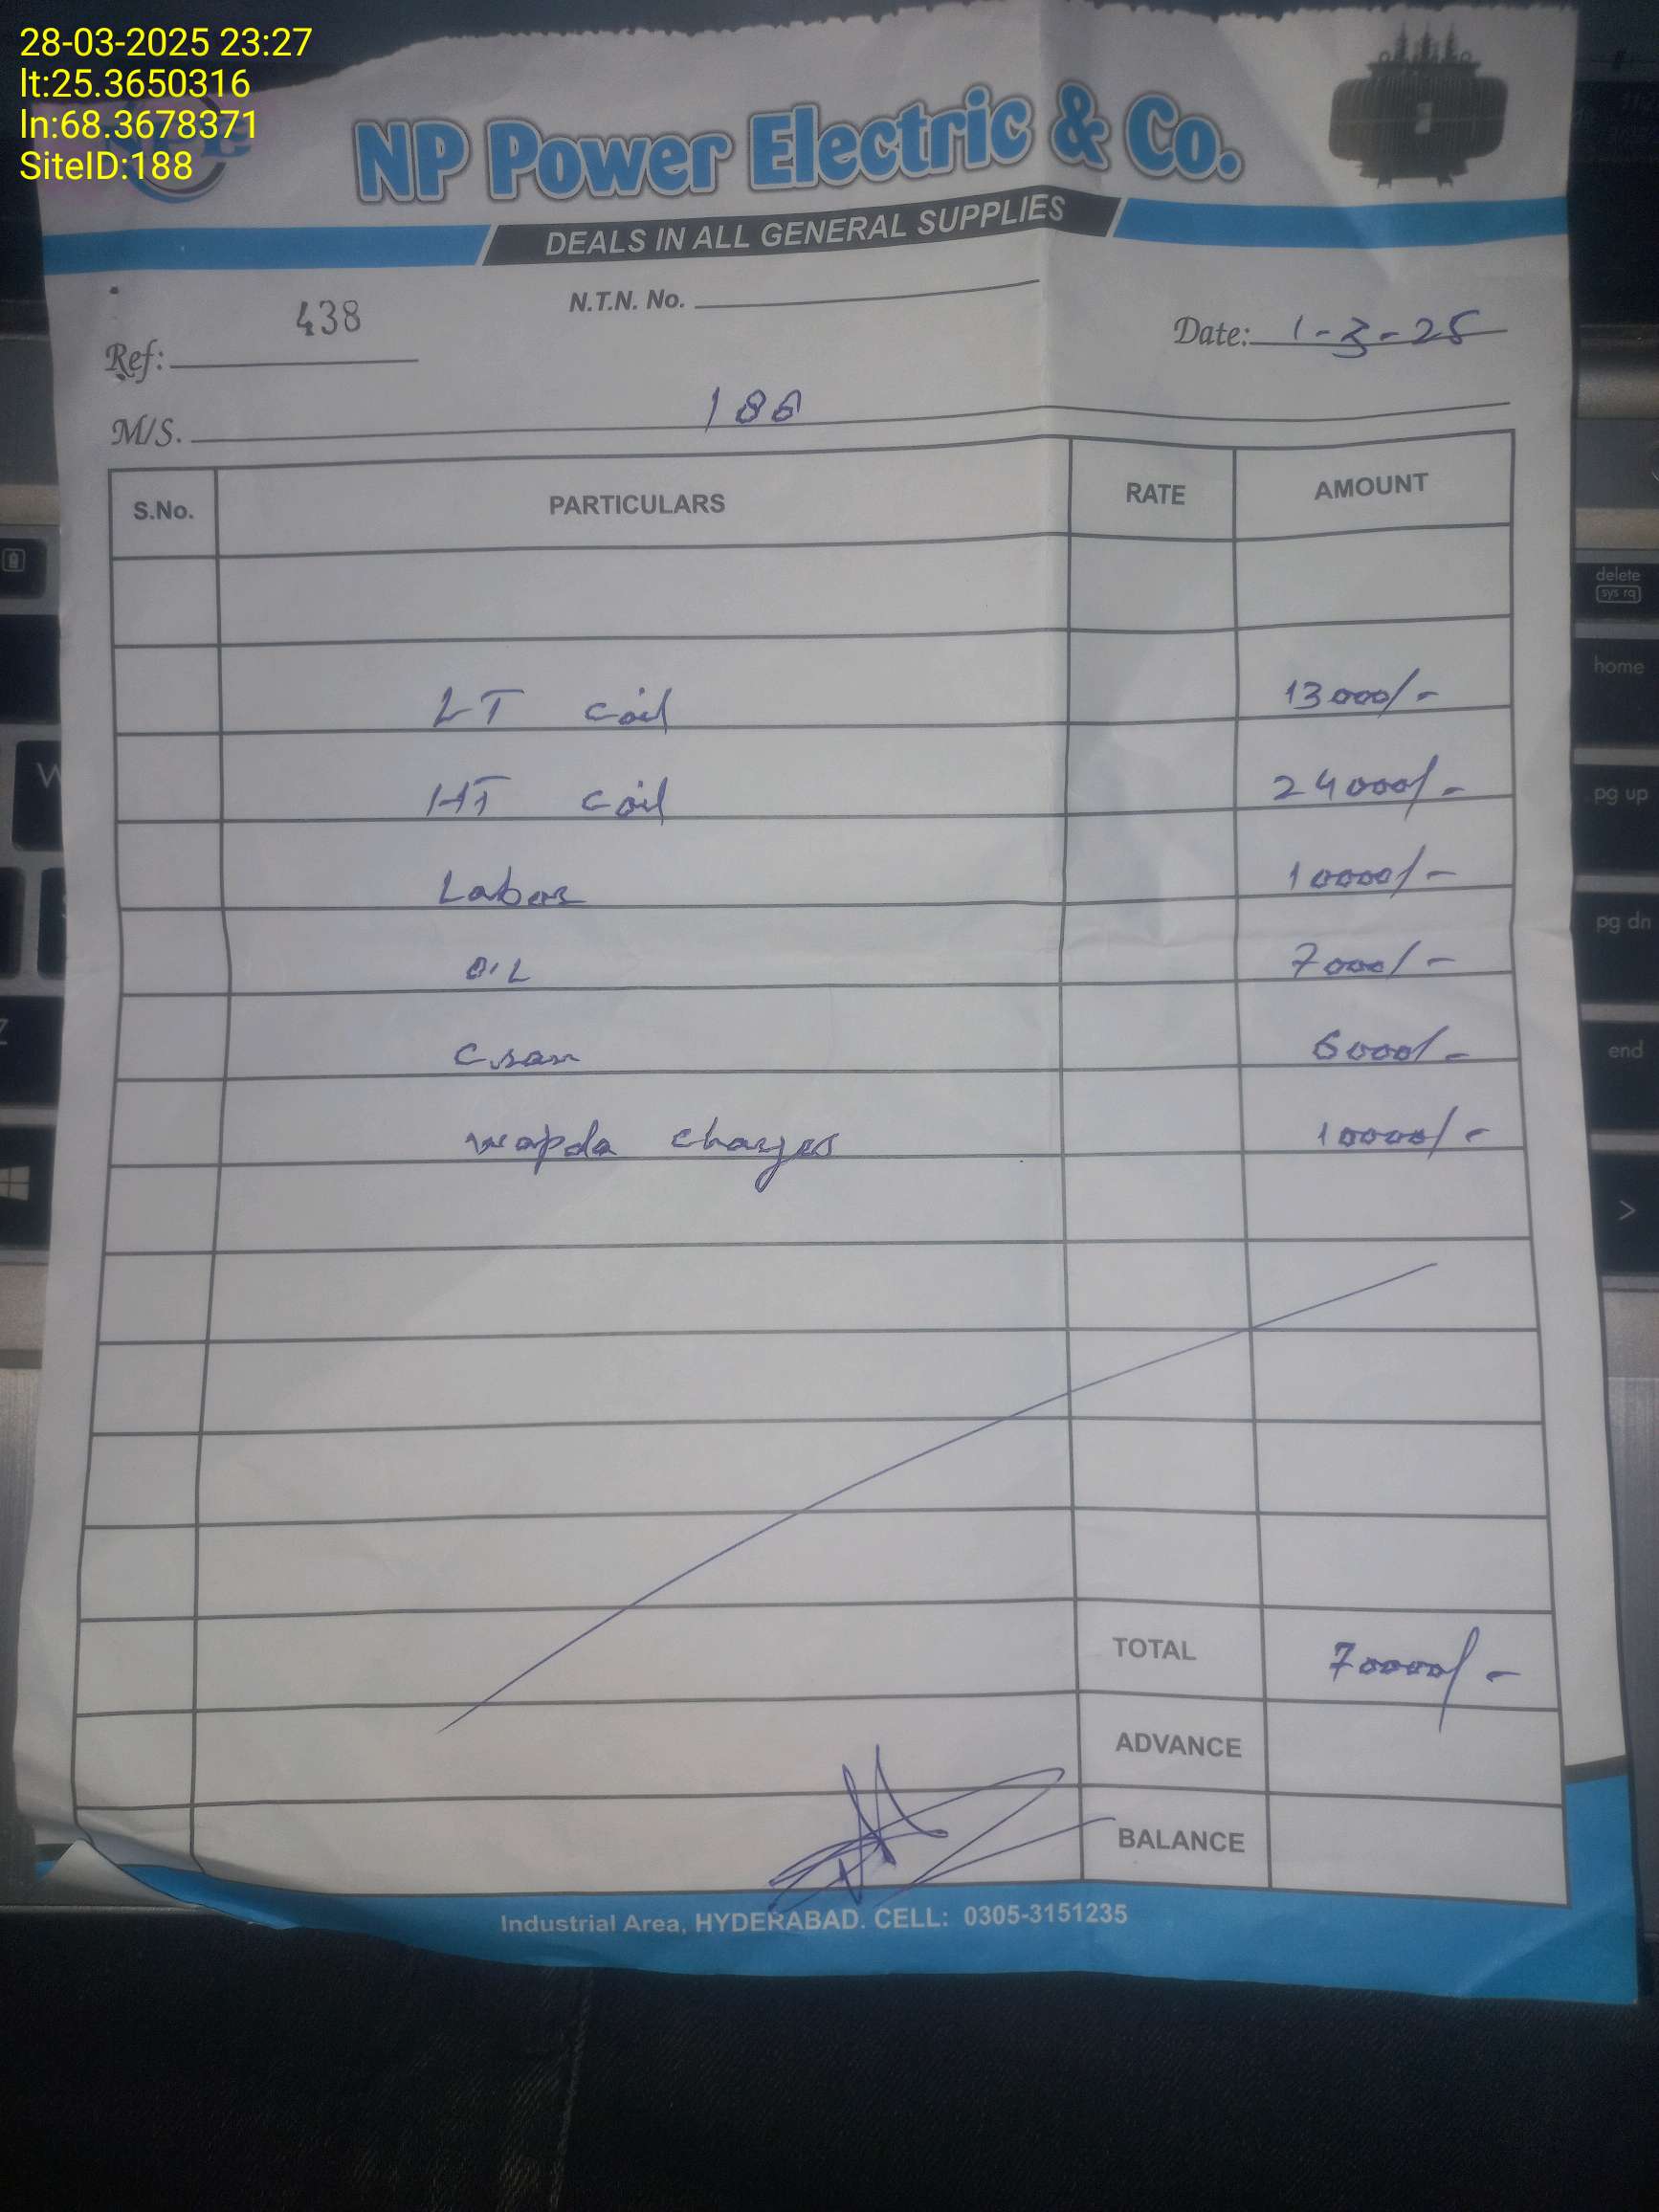 28-03-2025 23:27
lt:25.3650316
ln:68.3678371
SiteID:188
NP Power Electric & Co.
DEALS IN ALL GENERAL SUPPLIES
Ref: 438 N.T.N. No. Date: 1-3-25
M/S. 188
S.No. PARTICULARS RATE AMOUNT
LT coil 13000/-
HT coil 24000/-
Labor 10000/-
OIL 7000/-
Cran 6000/-
wapda charges 10000/-
TOTAL 70000/-
ADVANCE
BALANCE
Industrial Area, HYDERABAD. CELL: 0305-3151235
delete
sys rq
home
pg up
pg dn
end